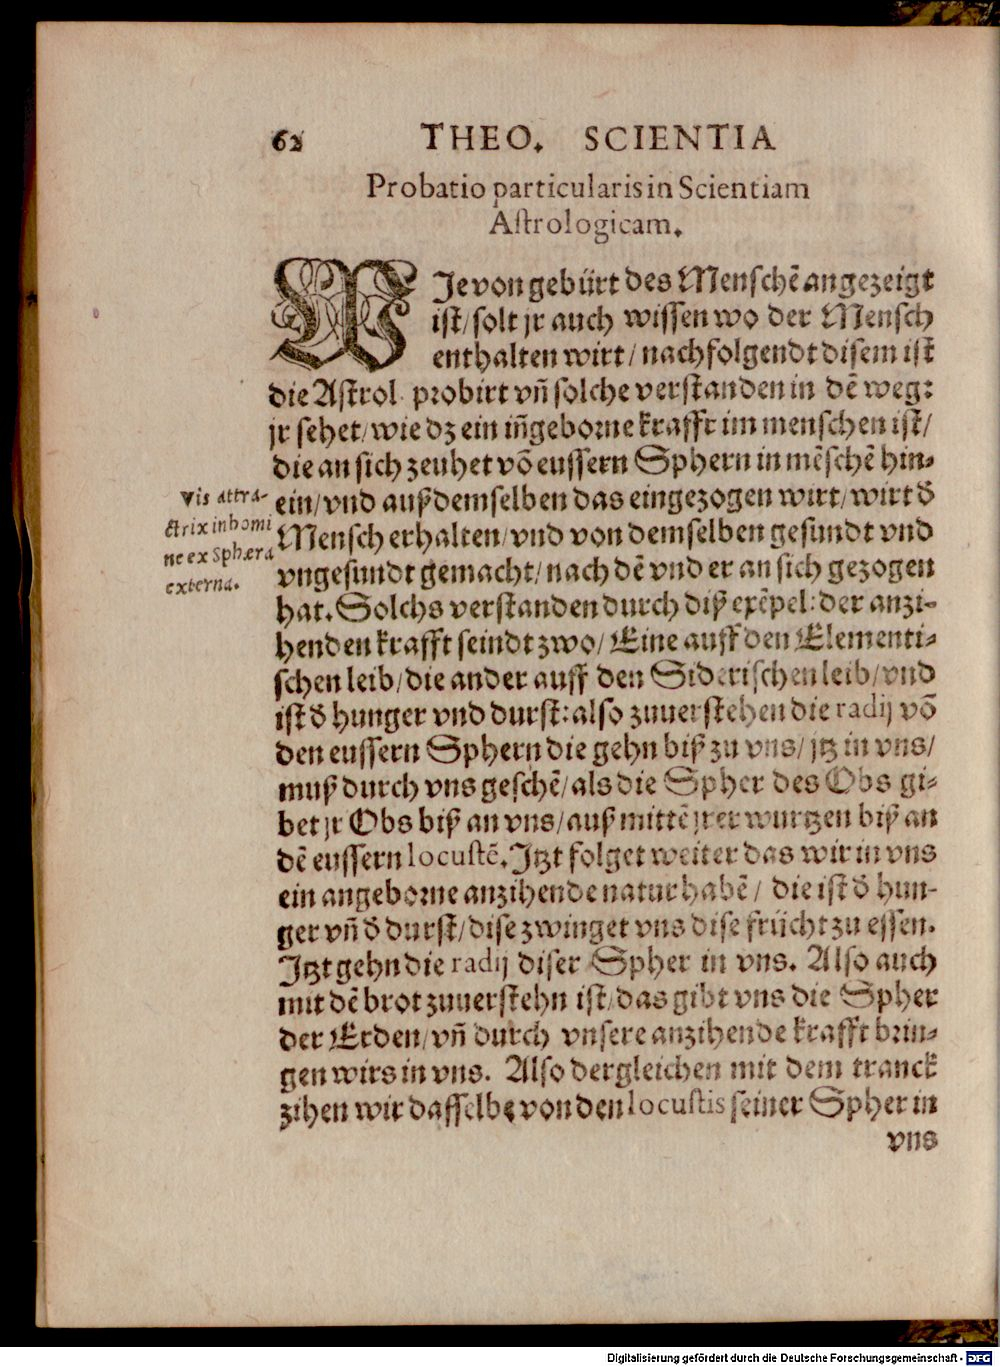 62 THEO. SCIENTIA
Probatio particularis in Scientiam
Aſtrologicam.
WJe von gebürt des Menſchẽ angezeigt
iſt/ ſolt jr auch wiſſen wo der Menſch
enthalten wirt/ nachfolgendt diſem iſt
die Aſtrol. probirt vñ ſolche verſtanden in dẽ weg:
jr ſehet/ wie dz ein iñgeborne krafft im menſchen iſt/
die an ſich zeuhet võ euſſern Sphern in mẽſchẽ hin-
ein/ vnd auß demſelben das eingezogen wirt/ wirt d̕
Menſch erhalten/ vnd von demſelben geſundt vnd
vngeſundt gemacht/ nach dẽ vnd er an ſich gezogen
hat. Solchs verſtanden durch diß exẽpel: der anzi-
henden krafft ſeindt zwo/ Eine auff den Elementi-
ſchen leib/ die ander auff den Sideriſchen leib/ vnd
iſt d̕ hunger vnd durſt: alſo zuuerſtehen die radij võ
den euſſern Sphern die gehn biß zu vns/ jtz in vns/
muß durch vns geſchẽ/ als die Spher des Obs gi-
bet jr Obs biß an vns/ auß mittẽ jrer wurtzen biß an
dẽ euſſern locuſtẽ. Jtzt folget weiter das wir in vns
ein angeborne anzihende natur habẽ/ die iſt d̕ hun-
ger vñ d̕ durſt/ diſe zwinget vns diſe frücht zu eſſen.
Jtzt gehn die radij diſer Spher in vns. Alſo auch
mit dẽ brot zuuerſtehn iſt/ das gibt vns die Spher
der Erden/ vñ durch vnſere anzihende krafft brin-
gen wirs in vns. Alſo dergleichen mit dem tranck
zihen wir daſſelbe von den locuſtis ſeiner Spher in
vns
Vis attra-
ctrix in homi
ne ex Sphæra
externa.
Digitalisierung gefördert durch die Deutsche Forschungsgemeinschaft - DFG